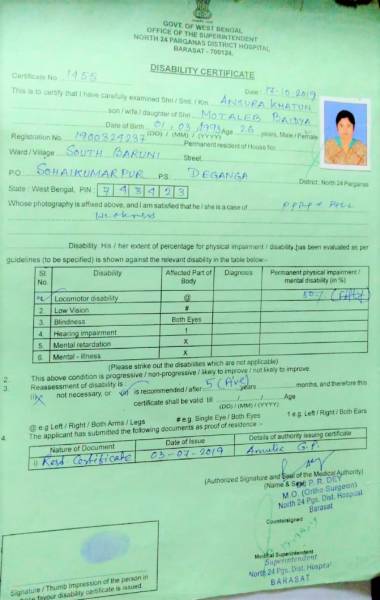 GOVT. OF WEST BENGAL
OFFICE OF THE SUPERINTENDENT
NORTH 24 PARGANAS DISTRICT HOSPITAL
BARASAT - 700124.
DISABILITY CERTIFICATE
Certificate No. 1455 Date: 12-10-2019
This is to certify that I have carefully examined Shri / Smt. / Km. ANSURA KHATUN
son / wife / daughter of Shri MOTALEB BAIDYA
Date of Birth 01/03/1993 Age 26 years, Male / Female
(DD) / (MM) / (YYYY)
Registration No. 1900324237 Permanent resident of House No.
Ward / Village SOUTH BARUNI Street
PO SOHAIKUMARPUR PS DEGANGA District: North 24 Parganas
State : West Bengal, PIN 743423
Whose photography is affixed above, and I am satisfied that he / she is a case of
weakness
Disability. His / her extent of percentage for physical impairment / disability has been evaluated as per
guidelines (to be specified) is shown against the relevant disability in the table below:-
Sl. No. Disability Affected Part of Body Diagnosis Permanent physical impairment / mental disability (in %)
Locomotor disability @ 50% (Fifty)
2. Low Vision #
3. Blindness Both Eyes
4. Hearing impairment 1
5. Mental retardation X
6. Mental - illness X
(Please strike out the disabilities which are not applicable)
2. This above condition is progressive / non-progressive / likely to improve / not likely to improve.
3. Reassessment of disability is :
not necessary, or is recommended / after 5 (Five) years months, and therefore this
certificate shall be valid till
(DD) / (MM) / (YYYY)
@ e.g Left / Right / Both Arms / Legs # e.g. Single Eye / Both Eyes 1 e.g. Left / Right / Both Ears
4. The applicant has submitted the following documents as proof of residence :-
Nature of Document Date of Issue Details of authority issuing certificate
i) Resd Certificate 03-07-2019 Amulia G.P.
(Authorized Signatory and Seal of the Medical Authority)
(Name & Seal)
Dr. P. R. DEY
M.O. (Ortho Surgeon)
North 24 Pgs. Dist. Hospital
Barasat
Countersigned
Medical Superintendent
Superintendent
North 24 Pgs. Dist. Hospital
BARASAT
Signature / Thumb impression of the person in
favour disability certificate is issued.